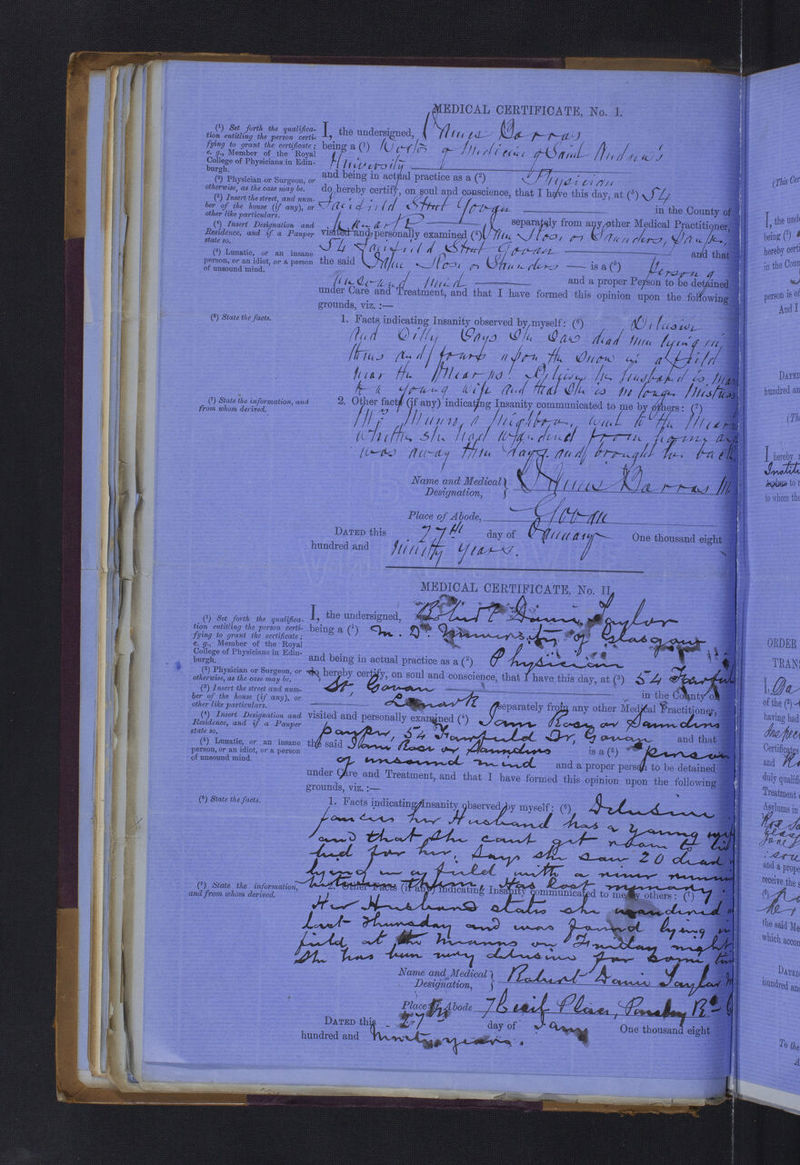 MEDICAL CERTIFICATE, No. I.
(1) Set forth the qualifica-
tion entitling the person certi-
fying to grant the certificate;
e. g., Member of the Royal
College of Physicians in Edin-
burgh.
(2) Physician or Surgeon, or
otherwise, as the case may be.
(3) Insert the street, and num-
ber of the house (if any), or
other like particulars.
(4) Insert Designation and
Residence, and if a Pauper
state so.
(5) Lunatic, or an insane
person, or an idiot, or a person
of unsound mind.
(6) State the facts.
(7) State the information, and
from whom derived.
I, the undersigned, James Barras
being a (1) Doctor of Medicine of Saint Andrew's
University
and being in actual practice as a (2) Physician
do hereby certify, on soul and conscience, that I have this day, at (3) 54
Fairfield Street Govan in the County of
Lanark separately from any other Medical Practitioner,
visited and personally examined (4) Jane Ross or Saunders, Pauper,
54 Fairfield Street Govan and that
the said Jane Ross or Saunders is a (5) Person of
unsound mind and a proper Person to be detained
under Care and Treatment, and that I have formed this opinion upon the following
grounds, viz. :—
1. Facts indicating Insanity observed by myself: (6) Delusive
and Silly Says She Saw dead men lying in
and fours upon the Snow in a field
near the Mearns. her husband is
to a young wife and that She is no longer Mistress
2. Other facts (if any) indicating Insanity communicated to me by others: (7)
Mrs Munro, a neighbour, went to the
whither she had wandered from home and
was away days and brought her back
Name and Medical
Designation,
James Barras
Place of Abode, Govan
DATED this 27th day of January One thousand eight
hundred and ninety years.
MEDICAL CERTIFICATE, No. II.
(1) Set forth the qualifica-
tion entitling the person certi-
fying to grant the certificate;
e. g., Member of the Royal
College of Physicians in Edin-
burgh.
(2) Physician or Surgeon, or
otherwise, as the case may be.
(3) Insert the street and num-
ber of the house (if any), or
other like particulars.
(4) Insert Designation and
Residence, and if a Pauper
state so.
(5) Lunatic, or an insane
person, or an idiot, or a person
of unsound mind.
(6) State the facts.
(7) State the information,
and from whom derived.
I, the undersigned, Robert Taylor
being a (1) M. D. University of Glasgow
and being in actual practice as a (2) Physician
do hereby certify, on soul and conscience, that I have this day, at (3) 54
St, Govan in the County of
Lanark separately from any other Medical Practitioner,
visited and personally examined (4) Jane Ross or Saunders
pauper, 54 Fairfield St, Govan and that
the said Jane Ross or Saunders is a (5) person
of unsound mind and a proper person to be detained
under Care and Treatment, and that I have formed this opinion upon the following
grounds, viz. :—
1. Facts indicating Insanity observed by myself: (6) Delusive
fancies her Husband has a young wife
and that she cant get room to
bed for her. Says she saw 20 dead
lying in a field with a river
between them. Has lost memory.
2. Other Facts (if any) indicating Insanity communicated to me by others: (7)
Her Husband states she wandered
last Thursday and was found lying in
field at the Mearns on night
She has been very delusive for some
Name and Medical
Designation,
Robert Taylor
Place of Abode 7 Cecil Place, Paisley Rd
DATED this 27th day of Jany One thousand eight
hundred and Ninety years.
(This Cer
I, the und
being (1)
hereby cert
in the Coun
person is of
And I
DATED
hundred an
I hereby
to whom the
ORDER
TRAN
I,
of the (1)
having had
Certificates
and
duly qualifi
Treatment
Asylums in
and a prope
receive the s
the said Me
which accom
DATED
hundred and
To the